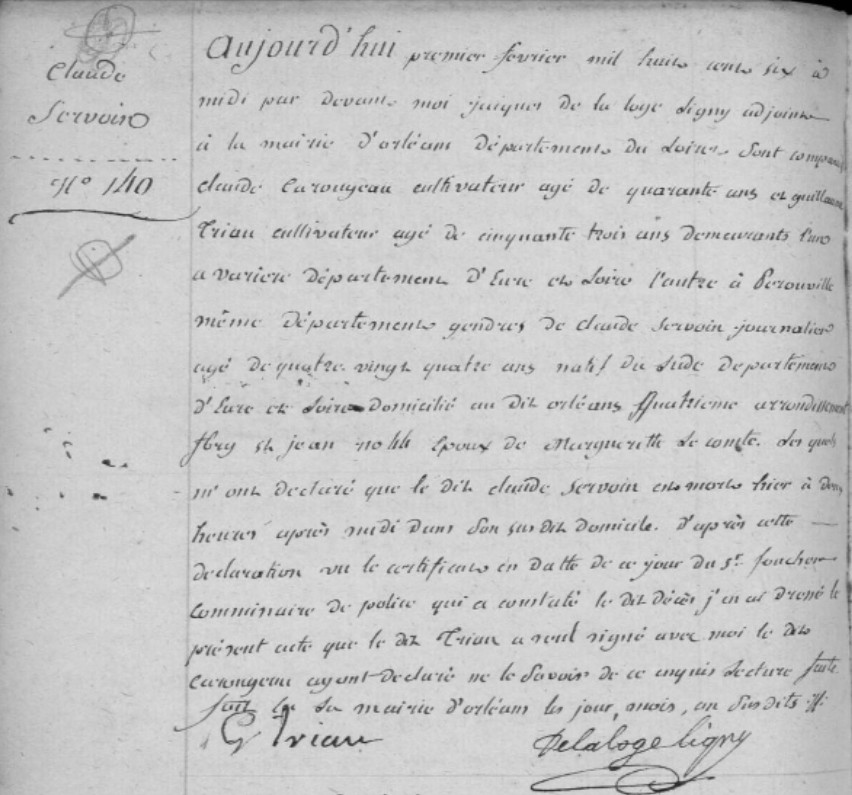 Claude
Servoin
N° 140
Aujourd'hui premier fevrier mil huit cent six à
midi par devant moi jacques de la loge Ligny adjoint
à la mairie d'orléans département du Loiret Sont comparus
claude Carougeau cultivateur agé de quarante ans et guillaume
Triau cultivateur agé de cinquante trois ans demeurants l'un
a variere département d'Eure et Loire l'autre à Perouville
même département gendres de claude Servoin journalier
agé de quatre vingt quatre ans natif du departement
d'Eure et Loire domicilié au dit orléans quatrieme arrondissement
fbrg st jean no 44 Epoux de Marguerite Le comte. Les quels
m'ont declaré que le dit claude Servoin est mort hier à deux
heures après midi dans Son susdit Domicile. d'après cette
declaration vu le certificat en datte de ce jour du Sr. foucher
Commissaire de police qui a constaté le dit décès j'en ai dressé le
présent acte que le dit Triau a seul signé avec moi le dit
Carougeau ayant declaré ne le Savoir de ce enquis Lecture faite
fait en La mairie d'orléans les jour, mois, an Susdits
G Triau
Delaloge Ligny